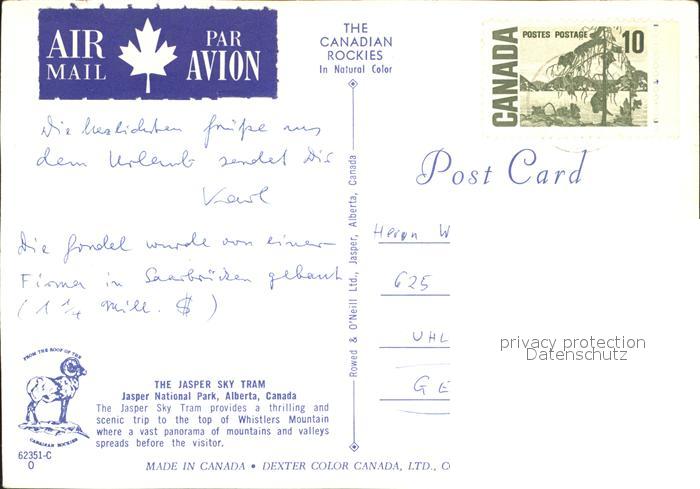 AIR MAIL
PAR AVION
THE
CANADIAN
ROCKIES
In Natural Color
CANADA
POSTES POSTAGE
10
Die herzlichsten Grüße aus
dem Urlaub sendet Dir
Karl
Die Gondel wurde von einer
Firma in Saarbrücken gebaut
(1 1/4 Mill. $)
Post Card
Herrn W
625
UHL
GE
privacy protection
Datenschutz
Rowed & O'Neill Ltd., Jasper, Alberta, Canada
FROM THE ROOF OF THE
CANADIAN ROCKIES
THE JASPER SKY TRAM
Jasper National Park, Alberta, Canada
The Jasper Sky Tram provides a thrilling and
scenic trip to the top of Whistlers Mountain
where a vast panorama of mountains and valleys
spreads before the visitor.
62351-C
O
MADE IN CANADA • DEXTER COLOR CANADA, LTD., CO